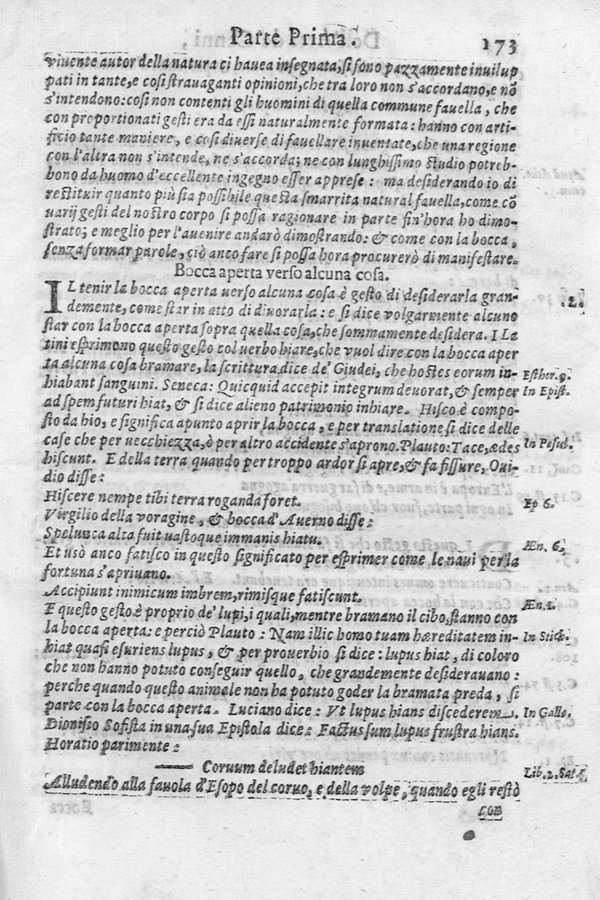 Parte Prima.
173
vivente autor della natura ci havea insegnata, si sono pazzamente inuilup
pati in tante, e cosi strauaganti opinioni, che tra loro non s'accordano, e nō
s'intendono: cosi non contenti gli huomini di quella commune fauella, che
con proportionati gesti era da essi naturalmente formata: hanno con arti-
ficio tante maniere, e cosi diuerse di fauellare inuentate, che una regione
con l'altra non s'intende, ne s'accorda; ne con lunghissimo studio potreb-
bono da huomo d'eccellente ingegno esser apprese: ma desiderando io di
restituir quanto più sia possibile questa smarrita natural fauella, come cō
uarij gesti del nostro corpo si possa ragionare in parte fin'hora ho dimo-
strato; e meglio per l'auenire andarò dimostrando: & come con la bocca,
senza formar parole, ciò anco fare si possa hora procurerò di manifestare.
Bocca aperta verso alcuna cosa.
IL tenir la bocca aperta uerso alcuna cosa è gesto di desiderarla gran-
12.
demente, come star in atto di diuorarla: e si dice volgarmente alcuno
star con la bocca aperta sopra quella cosa, che sommamente desidera. I La
tini esprimono questo gesto col uerbo hiare, che vuol dire con la bocca aper
ta alcuna cosa bramare, la scrittura dice de' Giudei, che hostes eorum in-
Esther. 9.
hiabant sanguini. Seneca: Quicquid accepit integrum deuorat, & semper
In Epist.
ad spem futuri hiat, & si dice alieno patrimonio inhiare. Hisco è compo-
sto da hio, e significa apunto aprir la bocca, e per translatione si dice delle
case che per uecchiezza, ò per altro accidente s'aprono. Plauto: Tace, ædes
hiscunt. E della terra quando per troppo ardor si apre, & fa fissure, Oui-
dio disse:
Hiscere nempe tibi terra roganda foret.
Ep 6.
Virgilio della voragine, & bocca d'Auerno disse:
Spelunca alta fuit uastoque immanis hiatu.
Æn. 6.
Et usò anco fatisco in questo significato per esprimer come le naui per la
fortuna s'apriuano.
Accipiunt inimicum imbrem, rimisque fatiscunt.
Æn. 1.
E questo gesto è proprio de' lupi, i quali, mentre bramano il cibo, stanno con
la bocca aperta: e perciò Plauto: Nam illic homo tuam hæreditatem in-
In Stich.
hiat quasi esuriens lupus, & per prouerbio si dice: lupus hiat, di coloro
che non hanno potuto conseguir quello, che grandemente desiderauano:
perche quando questo animale non ha potuto goder la bramata preda, si
parte con la bocca aperta. Luciano dice: Vt lupus hians discederem.
In Gallo.
Dionisio Sofista in una sua Epistola dice: Factus sum lupus frustra hians.
Horatio parimente:
Coruum deludet hiantem
Lib. 2. Sat. 5
Alludendo alla fauola d'Esopo del coruo, e della volpe, quando egli restò
con